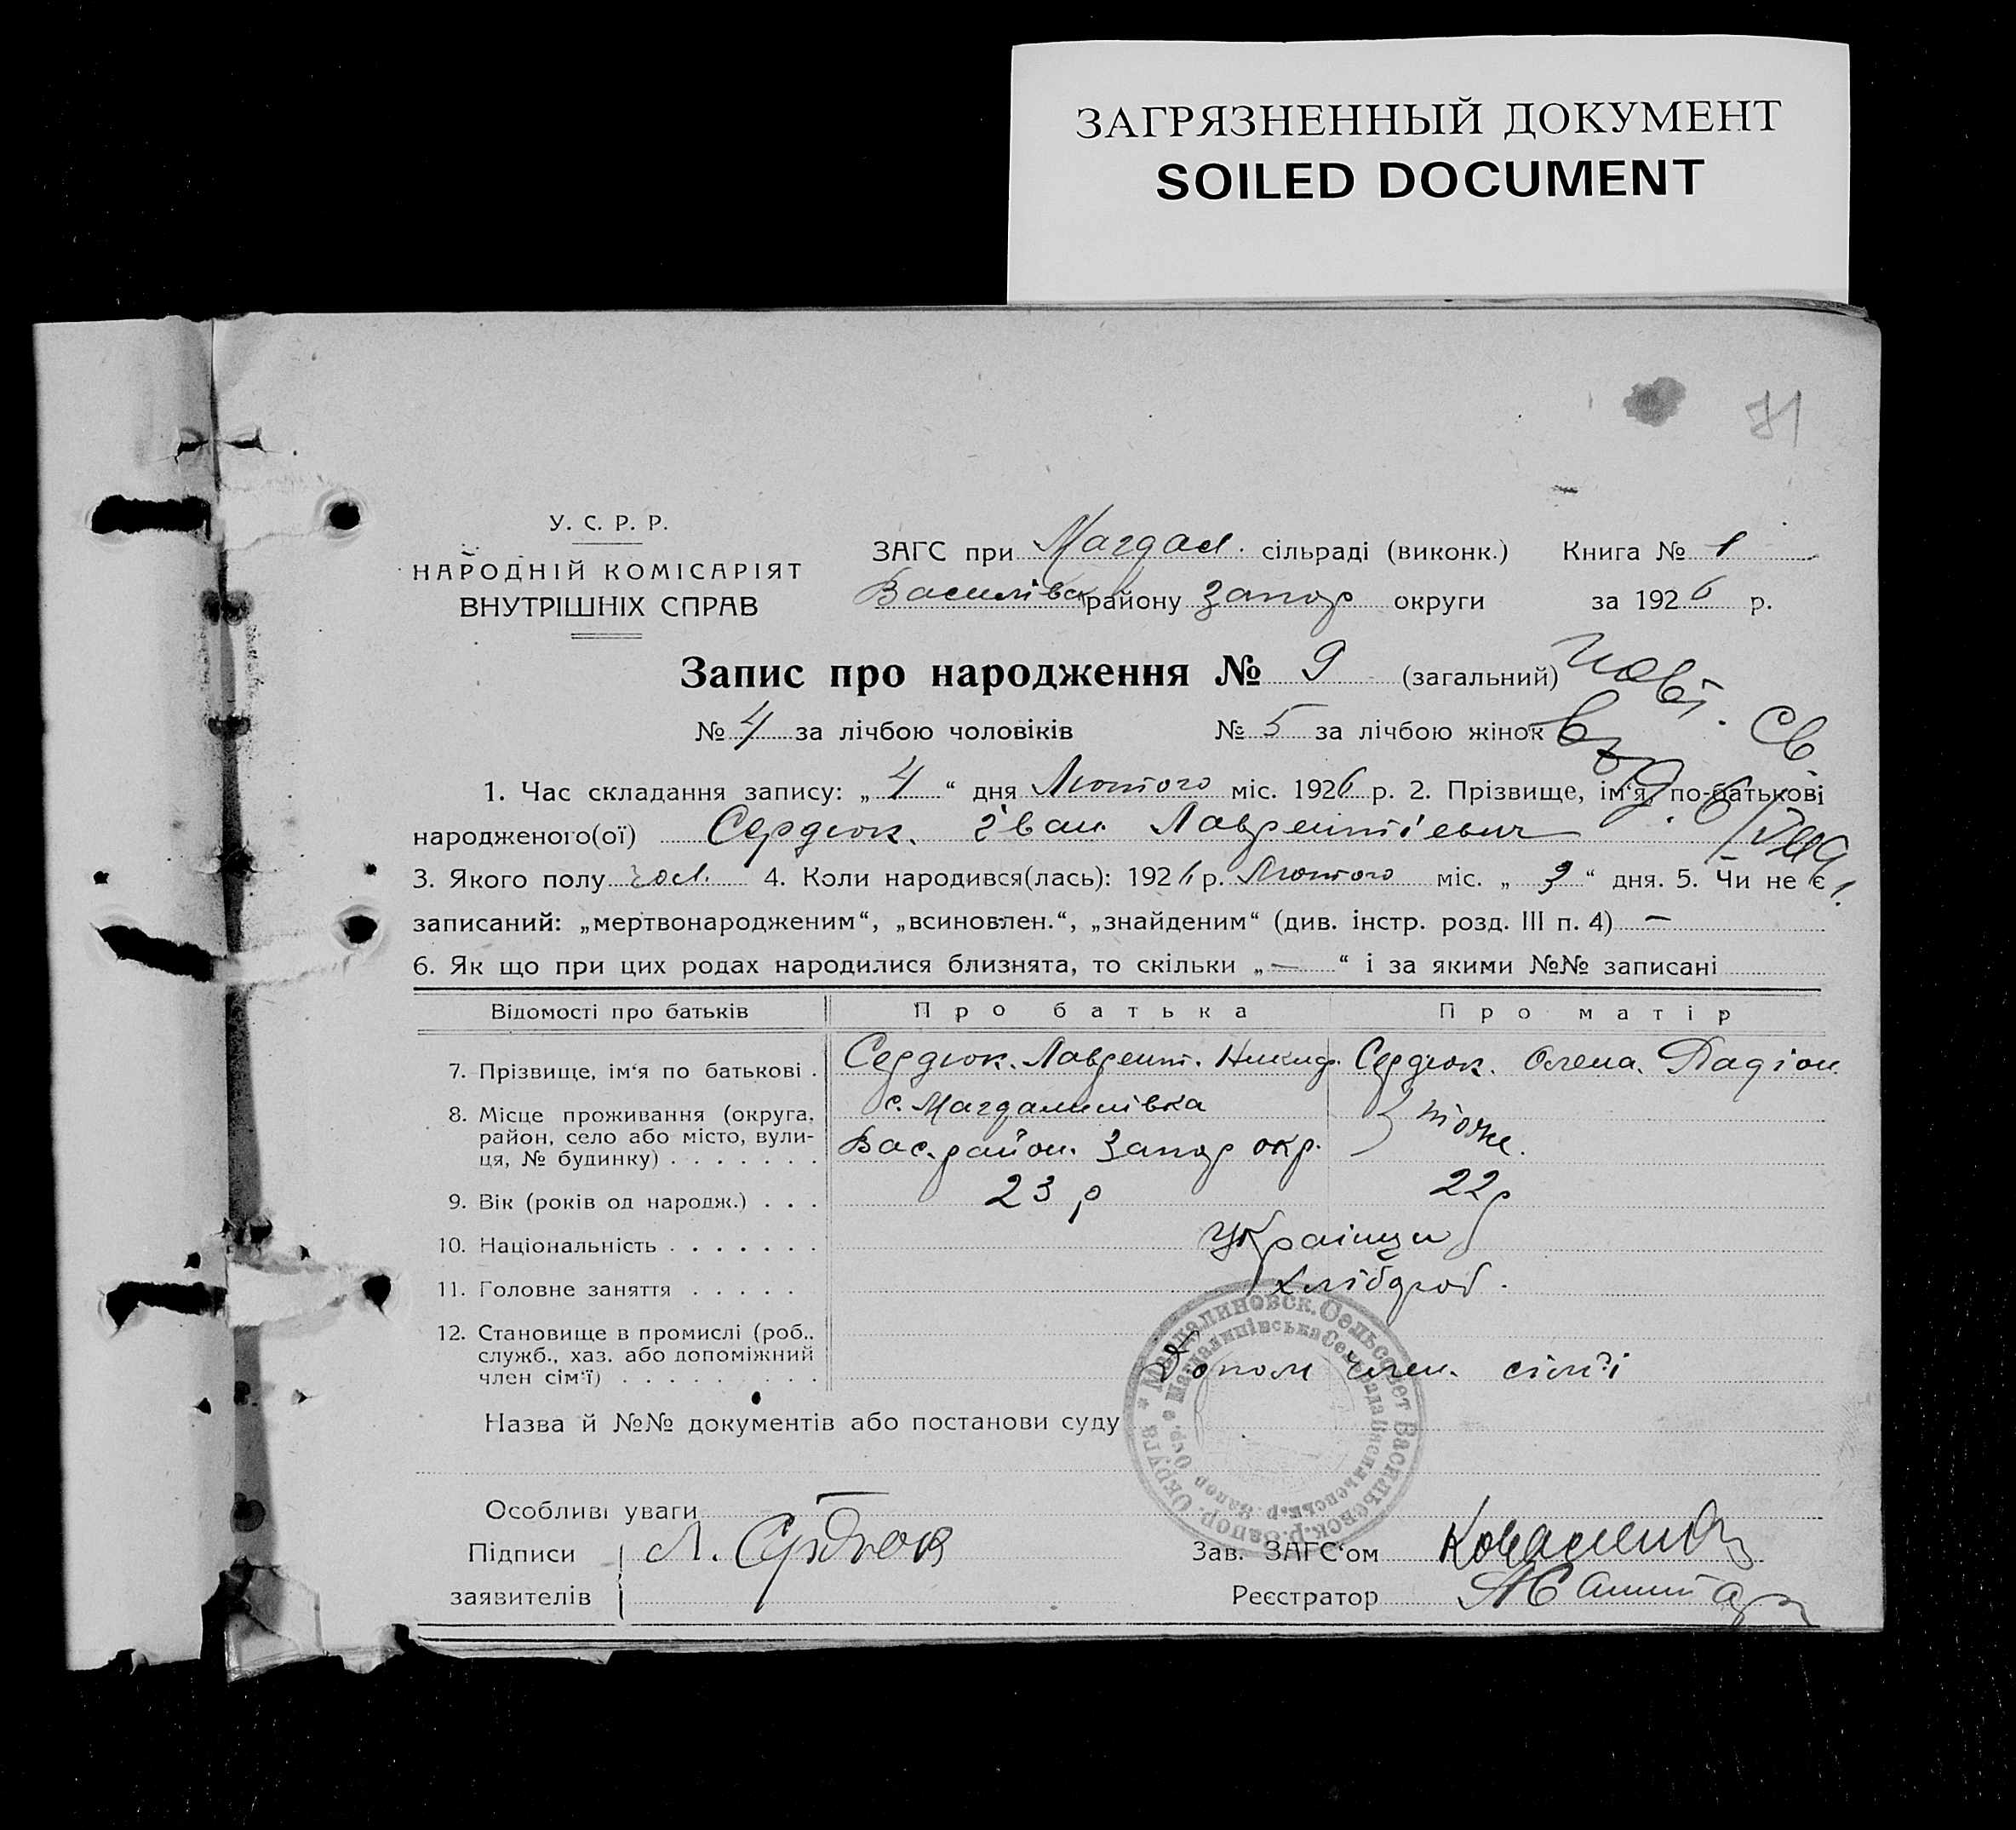 ЗАГРЯЗНЕННЫЙ ДОКУМЕНТ
SOILED DOCUMENT
У. С. Р. Р.
НАРОДНІЙ КОМІСАРІЯТ
ВНУТРІШНІХ СПРАВ
ЗАГС при Магдал. сільраді (виконк.) Книга № 1
Василівськ району Запор округи за 1926 р.
Запис про народження № 9 (загальний)
№ 4 за лічбою чоловіків № 5 за лічбою жінок
1. Час складання запису: „ 4 “ дня Лютого міс. 1926 р. 2. Прізвище, ім'я, по-батькові
народженого(ої) Сердюк. Іван Лаврентіевич
3. Якого полу чол. 4. Коли народився(лась): 1926 р. Лютого міс. „ 3 “ дня. 5. Чи не є
записаний: „мертвонародженим“, „всиновлен.“, „знайденим“ (див. інстр. розд. III п. 4) —
6. Як що при цих родах народилися близнята, то скільки „ — “ і за якими №№ записані
Відомості про батьків Про батька Про матір
7. Прізвище, ім'я по батькові . Сердюк. Лаврент. Никиф. Сердюк. Олена. Радіон.
8. Місце проживання (округа, с. Магдалинівка
район, село або місто, вули- Вас. район. Запор окр. тоже.
ця, № будинку) . . . . . . .
9. Вік (років од народж.) . . . 23 р 22 р
10. Національність . . . . . . . Українци
11. Головне заняття . . . . . Хлібороб.
12. Становище в промислі (роб.,
служб., хаз. або допоміжний Допом член. сім'ї
член сім'ї) . . . . . . . . .
Назва й №№ документів або постанови суду
Особливі уваги —
Підписи Л. Сердюк Зав. ЗАГС'ом Коваленко
заявителів Реєстратор
Магдалиновск. Сельсовет Васильевск. р. Запор. Округа